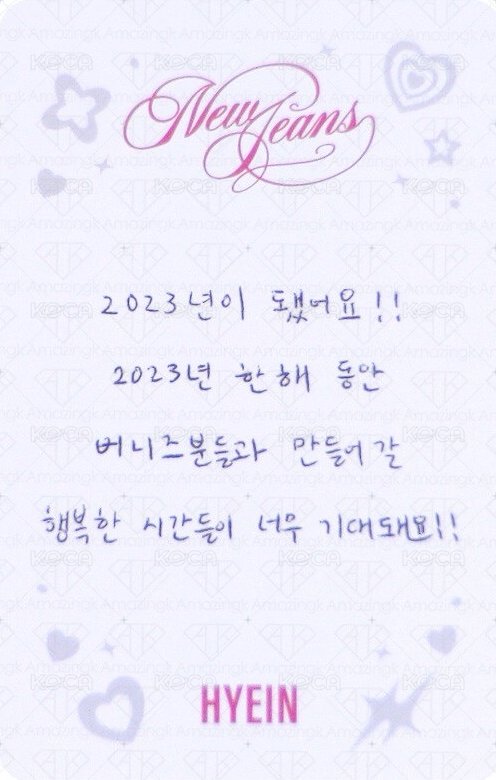 NewJeans
2023년이 됐어요!!
2023년 한해 동안
버니즈분들과 만들어갈
행복한 시간들이 너무 기대돼요!!
HYEIN